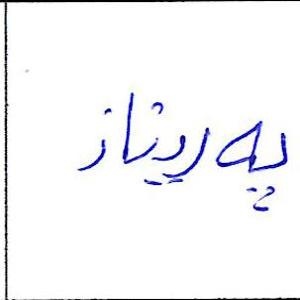 پەریناز